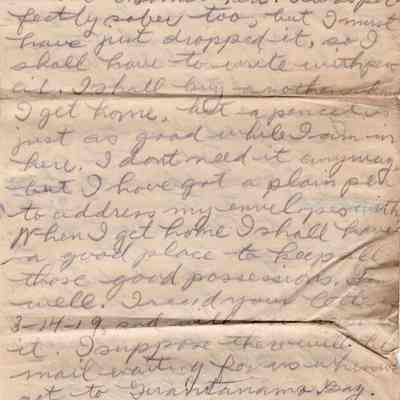 fectly sober too, but I must
have just dropped it, so I
shall have to write with pen
cil. I shall buy another when
I get home, but a pencil is
just as good while I am in
here. I dont need it anyway
but I have got a plain pen
to address my envelopes with
When I get home I shall have
a good place to keep all
those good possessions,
well. I read your
3-14-19, and will
it. I suppose there will be
mail waiting for us when we
get to Guantanamo Bay.